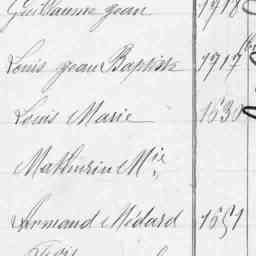 Guillaume Jean 1718
Louis Jean Baptiste 1717
Louis Marie 1630
Mathurin Mie
Armand Médard 1651